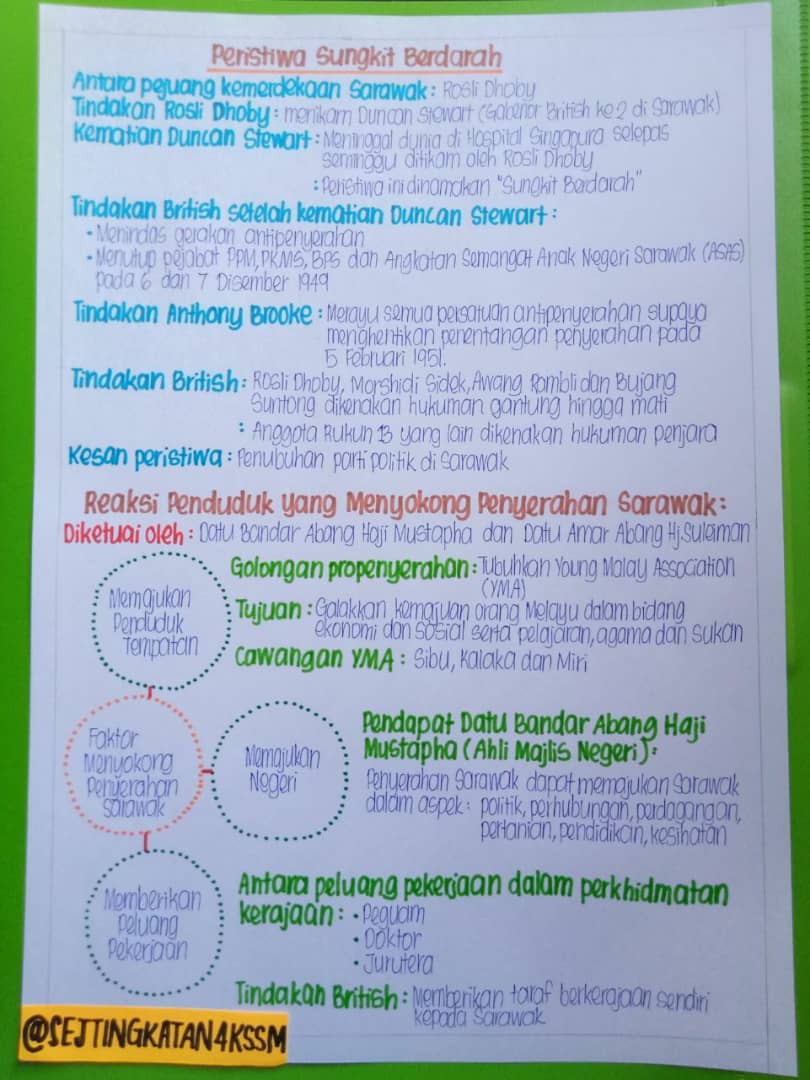 Peristiwa Sungkit Berdarah
Antara pejuang kemerdekaan Sarawak : Rosli Dhoby
Tindakan Rosli Dhoby : menikam Duncan Stewart (Gabenor British ke 2 di Sarawak)
Kematian Duncan Stewart : Meninggal dunia di Hospital Singapura selepas
seminggu ditikam oleh Rosli Dhoby
: Peristiwa ini dinamakan "Sungkit Berdarah"
Tindakan British setelah kematian Duncan Stewart :
• Menindas gerakan antipenyerahan
• Menutup pejabat PPM, PKMS, BPS dan Angkatan Semangat Anak Negeri Sarawak (ASAS)
pada 6 dan 7 Disember 1949
Tindakan Anthony Brooke : Merayu semua persatuan antipenyerahan supaya
menghentikan penentangan penyerahan pada
5 Februari 1951.
Tindakan British : Rosli Dhoby, Morshidi Sidek, Awang Rambli dan Bujang
Suntong dikenakan hukuman gantung hingga mati
: Anggota Rukun 13 yang lain dikenakan hukuman penjara
Kesan peristiwa : Penubuhan parti politik di Sarawak
Reaksi Penduduk yang Menyokong Penyerahan Sarawak :
Diketuai oleh : Datu Bandar Abang Haji Mustapha dan Datu Amar Abang Hj. Suleiman
Memajukan
Penduduk
Tempatan
Golongan propenyerahan : Tubuhkan Young Malay Association
(YMA)
Tujuan : Galakkan kemajuan orang Melayu dalam bidang
ekonomi dan sosial serta pelajaran, agama dan sukan
Cawangan YMA : Sibu, Kalaka dan Miri
Faktor
Menyokong
Penyerahan
Sarawak
Memajukan
Negeri
Pendapat Datu Bandar Abang Haji
Mustapha (Ahli Majlis Negeri) :
Penyerahan Sarawak dapat memajukan Sarawak
dalam aspek : politik, perhubungan, perdagangan,
pertanian, pendidikan, kesihatan
Memberikan
Peluang
Pekerjaan
Antara peluang pekerjaan dalam perkhidmatan
kerajaan : • Peguam
• Doktor
• Jurutera
Tindakan British : Memberikan taraf berkerajaan sendiri
kepada Sarawak
@SEJTINGKATAN4KSSM